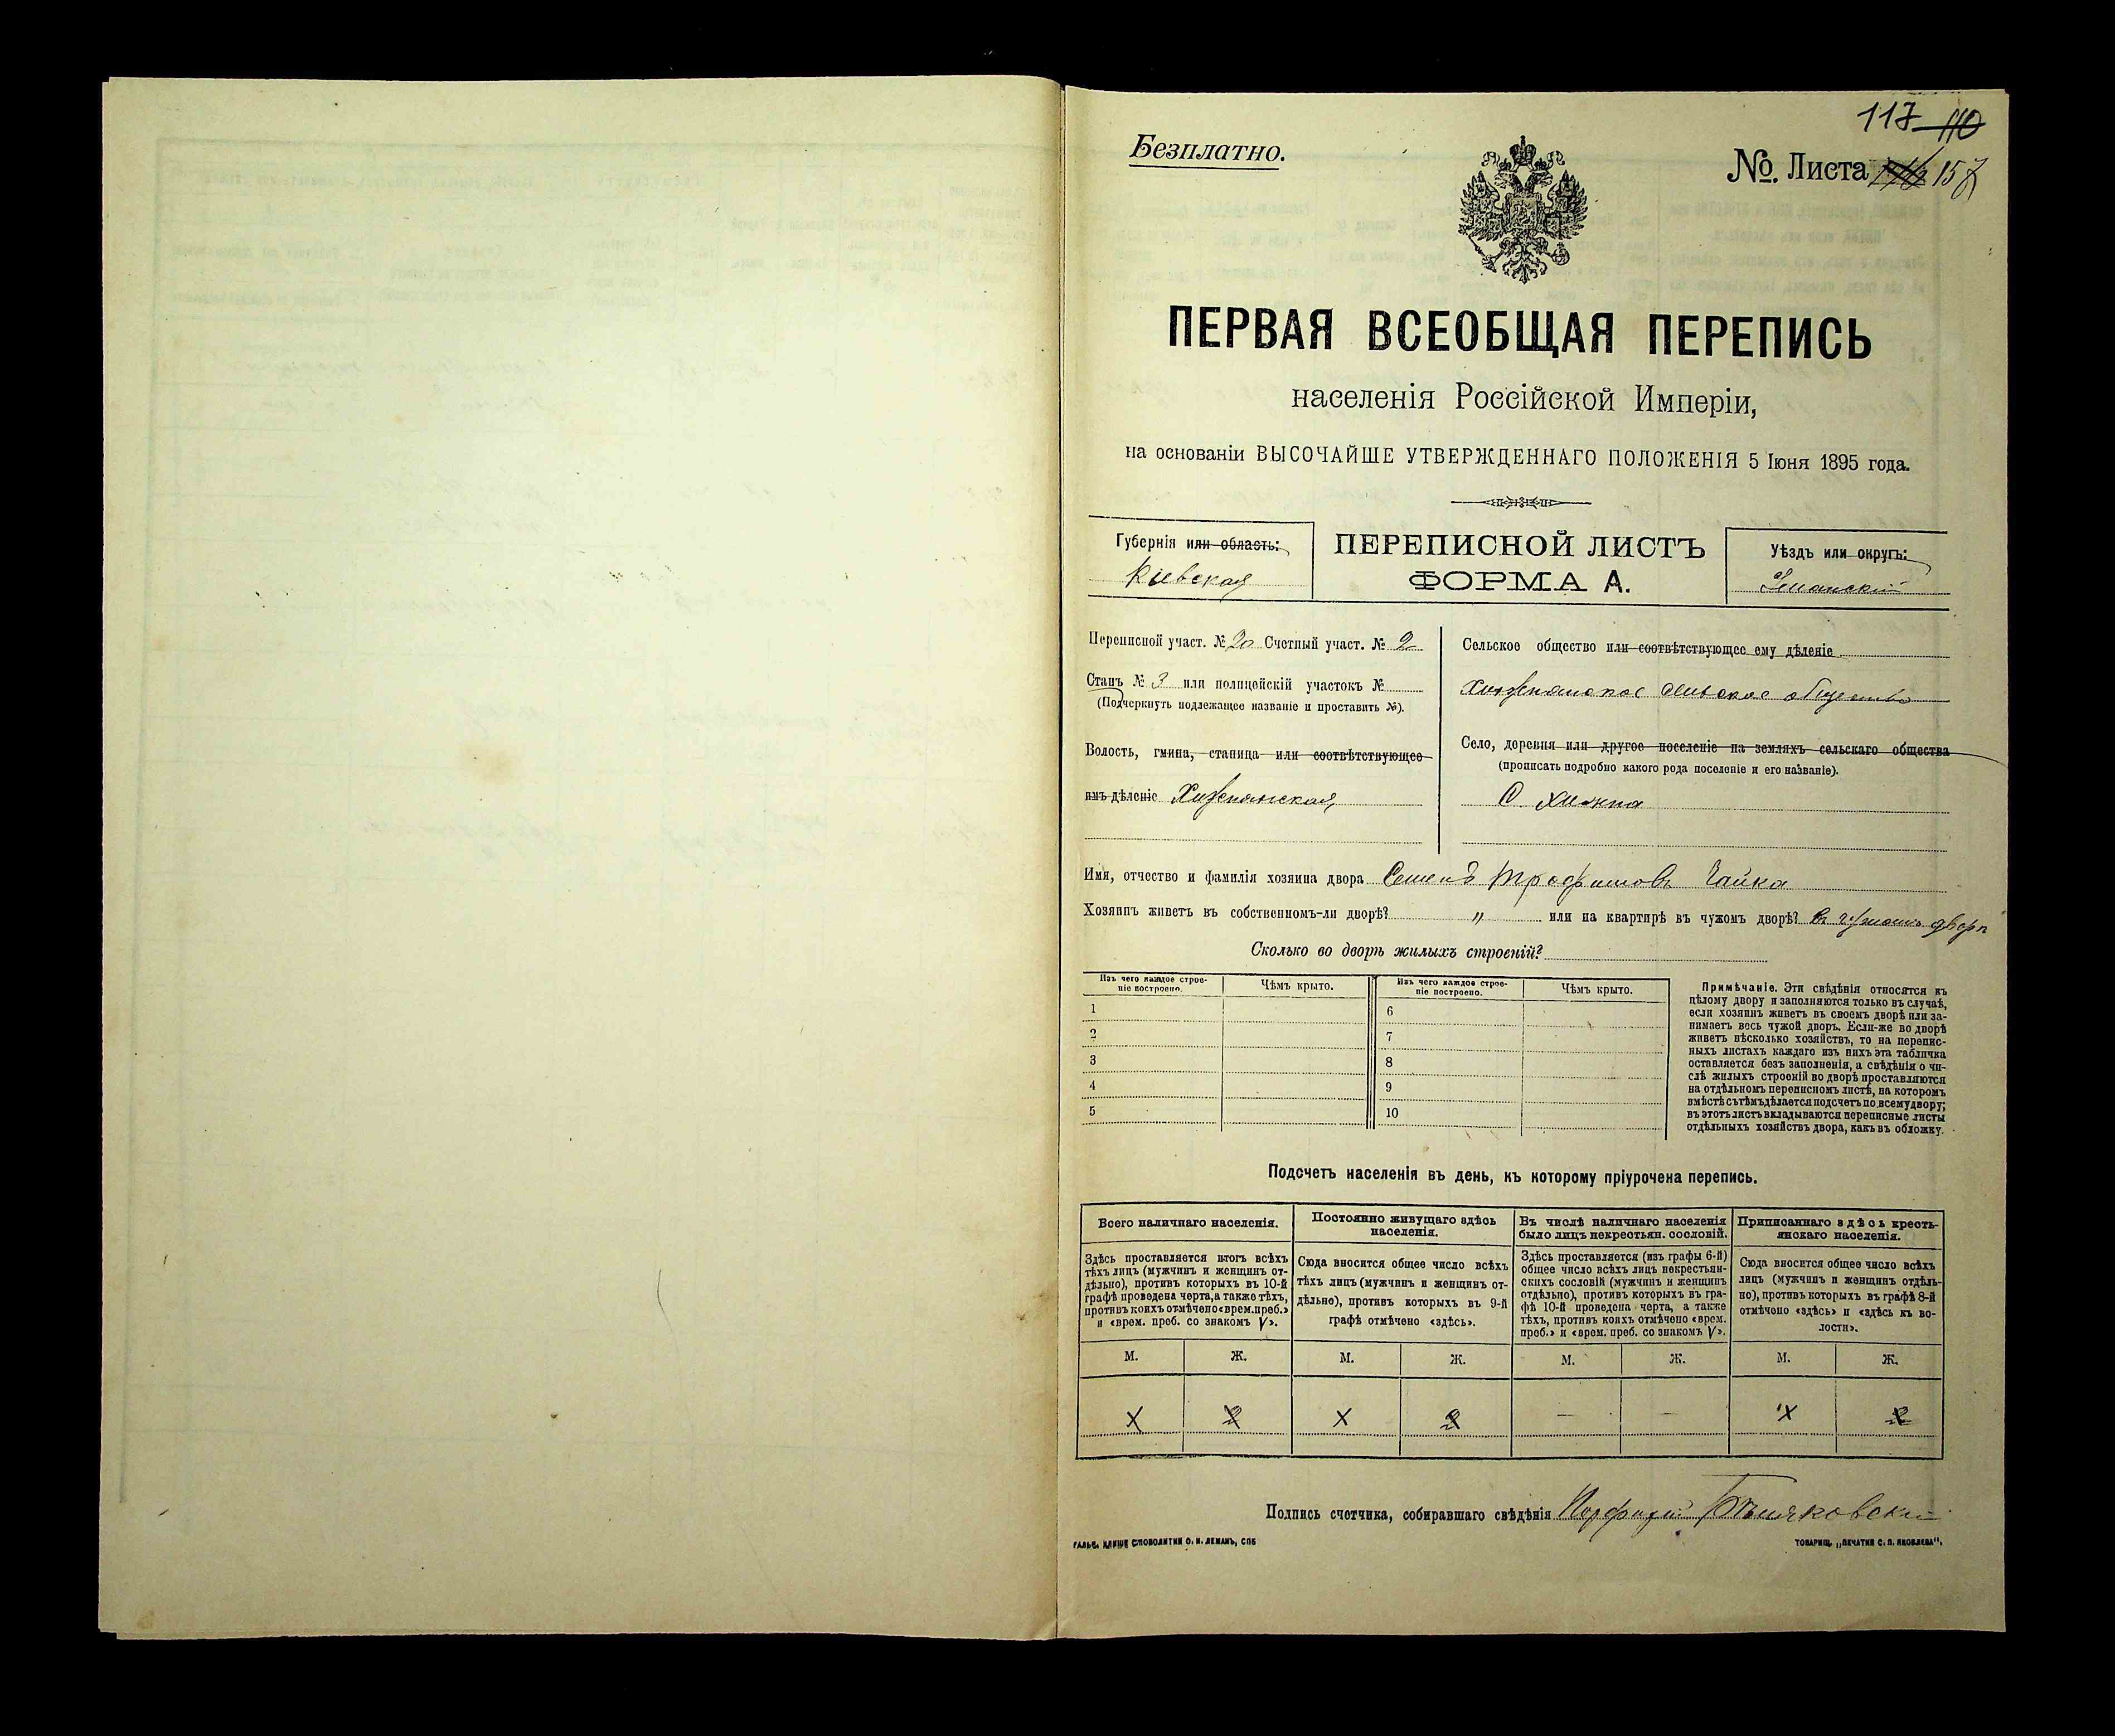 117 110
Безплатно.
№. Листа 157
ПЕРВАЯ ВСЕОБЩАЯ ПЕРЕПИСЬ
населенія Россійской Имперіи,
на основаніи ВЫСОЧАЙШЕ УТВЕРЖДЕННАГО ПОЛОЖЕНІЯ 5 Іюня 1895 года.
Губернія или область:
Кіевская
ПЕРЕПИСНОЙ ЛИСТЪ
ФОРМА А.
Уѣздъ или округъ:
Уманскій
Переписной участ. № 20 Счетный участ. № 2
Станъ № 3 или полицейскій участокъ №
(Подчеркнуть подлежащее названіе и проставить №).
Волость, гмина, станица или соотвѣтствующее
имъ дѣленіе Хижнянская
Сельское общество или соотвѣтствующее ему дѣленіе
Хижнянское сельское общество
Село, деревня или другое поселеніе на земляхъ сельскаго общества
(прописать подробно какого рода поселеніе и его названіе).
С. Хижна
Имя, отчество и фамилія хозяина двора Семенъ Трофимовъ Чайка
Хозяинъ живетъ въ собственномъ-ли дворѣ? " или на квартирѣ въ чужомъ дворѣ? въ чужомъ дворѣ
Сколько во дворѣ жилыхъ строеній?
Изъ чего каждое строе-
ніе построено.
Чѣмъ крыто.
Изъ чего каждое строе-
ніе построено.
Чѣмъ крыто.
1 6
2 7
3 8
4 9
5 10
Примѣчаніе. Эти свѣдѣнія относятся къ
цѣлому двору и заполняются только въ случаѣ,
если хозяинъ живетъ въ своемъ дворѣ или за-
нимаетъ весь чужой дворъ. Если-же во дворѣ
живетъ нѣсколько хозяйствъ, то на перепис-
ныхъ листахъ каждаго изъ нихъ эта табличка
оставляется безъ заполненія, а свѣдѣнія о чи-
слѣ жилыхъ строеній во дворѣ проставляются
на отдѣльномъ переписномъ листѣ, на которомъ
вмѣстѣ съ тѣмъ дѣлается подсчетъ по всему двору;
въ этотъ листъ вкладываются переписные листы
отдѣльныхъ хозяйствъ двора, какъ въ обложку.
Подсчетъ населенія въ день, къ которому пріурочена перепись.
Всего наличнаго населенія.
Здѣсь проставляется итогъ всѣхъ
тѣхъ лицъ (мужчинъ и женщинъ от-
дѣльно), противъ которыхъ въ 10-й
графѣ проведена черта, а также тѣхъ,
противъ коихъ отмѣчено «врем. преб.»
и «врем. преб. со знакомъ V».
Постоянно живущаго здѣсь
населенія.
Сюда вносится общее число всѣхъ
тѣхъ лицъ (мужчинъ и женщинъ от-
дѣльно), противъ которыхъ въ 9-й
графѣ отмѣчено «здѣсь».
Въ числѣ наличнаго населенія
было лицъ некрестьян. сословій.
Здѣсь проставляется (изъ графы 6-й)
общее число всѣхъ лицъ некрестьян-
скихъ сословій (мужчинъ и женщинъ
отдѣльно), противъ которыхъ въ гра-
фѣ 10-й проведена черта, а также
тѣхъ, противъ коихъ отмѣчено «врем.
преб.» и «врем. преб. со знакомъ V».
Приписаннаго здѣсь кресть-
янскаго населенія.
Сюда вносится общее число всѣхъ
лицъ (мужчинъ и женщинъ отдѣль-
но), противъ которыхъ въ графѣ 8-й
отмѣчено «здѣсь» и «здѣсь къ во-
лости».
М. Ж. М. Ж. М. Ж. М. Ж.
2 2 — — 2
Подпись счетчика, собиравшаго свѣдѣнія Порфирій
ГАЛЬВ. КЛИШЕ СЛОВОЛИТНИ О. И. ЛЕМАНЪ, СПБ
ТОВАРИЩ. „ПЕЧАТНИ С. П. ЯКОВЛЕВА".